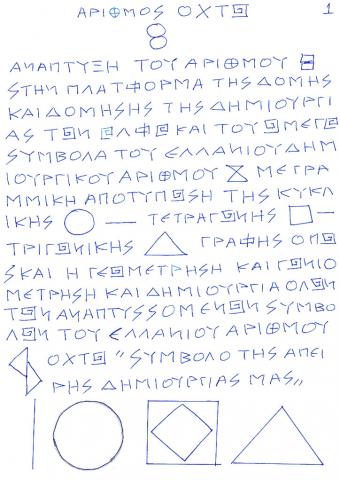 ΑΡΙΘΜΟΣ ΟΧΤΩ 1
8
ΑΝΑΠΤΥΞΗ ΤΟΥ ΑΡΙΘΜΟΥ 8
ΣΤΗΝ ΠΛΑΤΦΟΡΜΑ ΤΗΣ ΔΟΜΗΣ
ΚΑΙ ΔΟΜΗΣΗΣ ΤΗΣ ΔΗΜΙΟΥΡΓΙ
ΑΣ ΤΩΝ ΑΛΦΑ ΚΑΙ ΤΟΥ ΩΜΕΓΑ
ΣΥΜΒΟΛΑ ΤΟΥ ΕΛΛΑΝΙΟΥ ΔΗΜ
ΙΟΥΡΓΙΚΟΥ ΑΡΙΘΜΟΥ ΜΕ ΓΡΑ
ΜΜΙΚΗ ΑΠΟΤΥΠΩΣΗ ΤΗΣ ΚΥΚΛ
ΙΚΗΣ — ΤΕΤΡΑΓΩΝΗΣ —
ΤΡΙΓΩΝΙΚΗΣ ΓΡΑΦΗΣ ΟΠΩ
Σ ΚΑΙ Η ΓΕΩΜΕΤΡΗΣΗ ΚΑΙ ΓΩΝΙΟ
ΜΕΤΡΗΣΗ ΚΑΙ ΔΗΜΙΟΥΡΓΙΑ ΟΛΩΝ
ΤΩΝ ΑΝΑΠΤΥΣΣΟΜΕΝΩΝ ΣΥΜΒΟ
ΛΩΝ ΤΟΥ ΕΛΛΑΝΙΟΥ ΑΡΙΘΜΟΥ
ΟΧΤΩ "ΣΥΜΒΟΛΟ ΤΗΣ ΑΠΕΙ
ΡΗΣ ΔΗΜΙΟΥΡΓΙΑΣ ΜΑΣ„